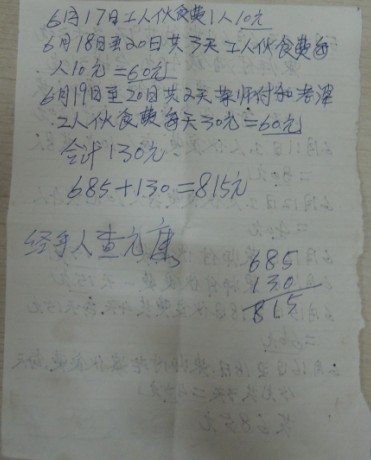 6月17日工人伙食费1人10元
6月18日至20日共3天工人伙食费每
人10元=60元
6月19日至20日共2天 师付和老
工人伙食费每天30元=60元
合计130元
685+130=815元
经手人查元
685
130
815